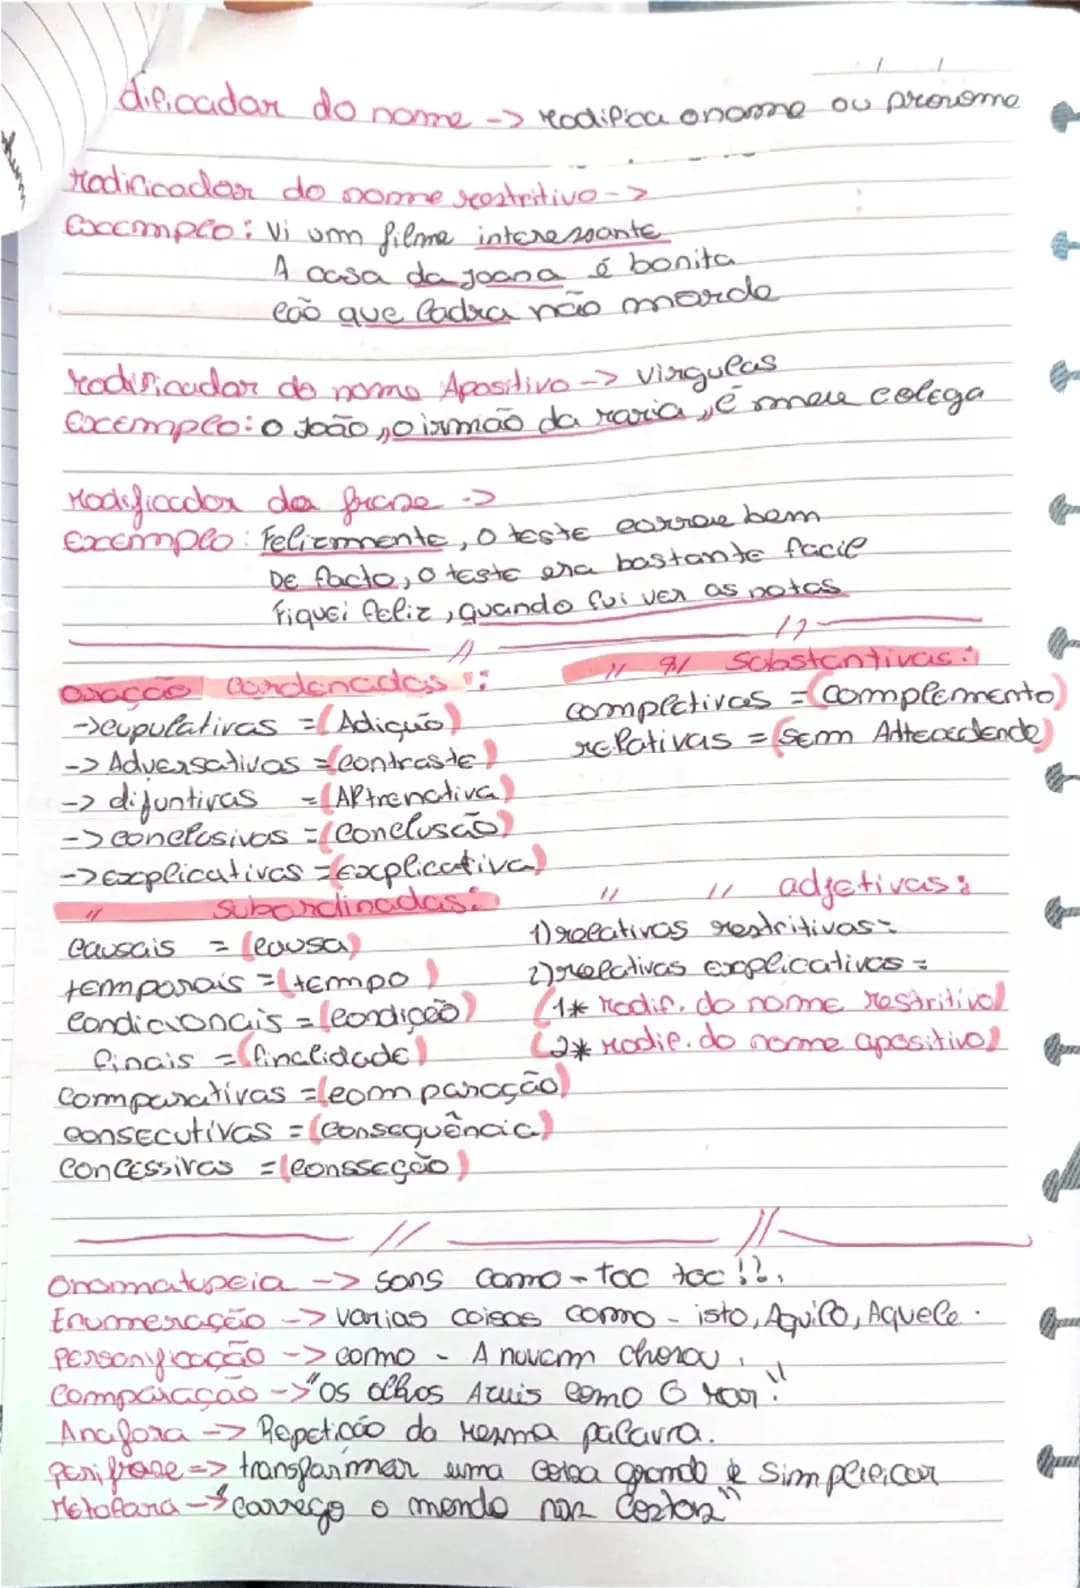 dificador do nome -> Modifica o nome ou pronome
Modificador do nome restritivo ->
Exemplo: Vi um filme interessante
A casa da Joana é bonita
Cão que ladra não morde
Modificador do nome Apositivo -> virgulas
Exemplo: o João, o irmão da Maria, é meu colega
Modificador da frase ->
Exemplo: Felizmente, o teste correu bem
De facto, o teste era bastante facil
Fiquei feliz, quando fui ver as notas
// //
oração Cordenadas :
-> cupulativas = (Adição)
-> Adversativas = (contraste)
-> dijuntivas = (Altrenativa)
-> conclusivas = (Conclusão)
-> explicativas = (explicativa)
// subordinadas:
Causais = (causa)
temporais = (tempo)
Condicionais = (condição)
finais = (finalidade)
Comparativas = (comparação)
consecutivas = (consequência)
Concessivas = (consseção)
// // Substantivas:
completivas = (complemento)
relativas = (sem Antecedende)
// // adjetivas:
1) relativas restritivas =
2) relativas explicativas =
(1* Modif. do nome restritivo)
(2* Modif. do nome apositivo)
// //
Onomatupeia -> Sons como - toc toc !!,
Enumeração -> varias coisas como - isto, Aquilo, Aquele.
Personificação -> como - A nuvem chorou,
Comparação -> "os olhos Azuis como o mar!"
Anafora -> Repetição da mesma palavra.
perifrase => transformar uma coisa grande e simplificar
Metafara -> "carrego o mundo nas Costas"